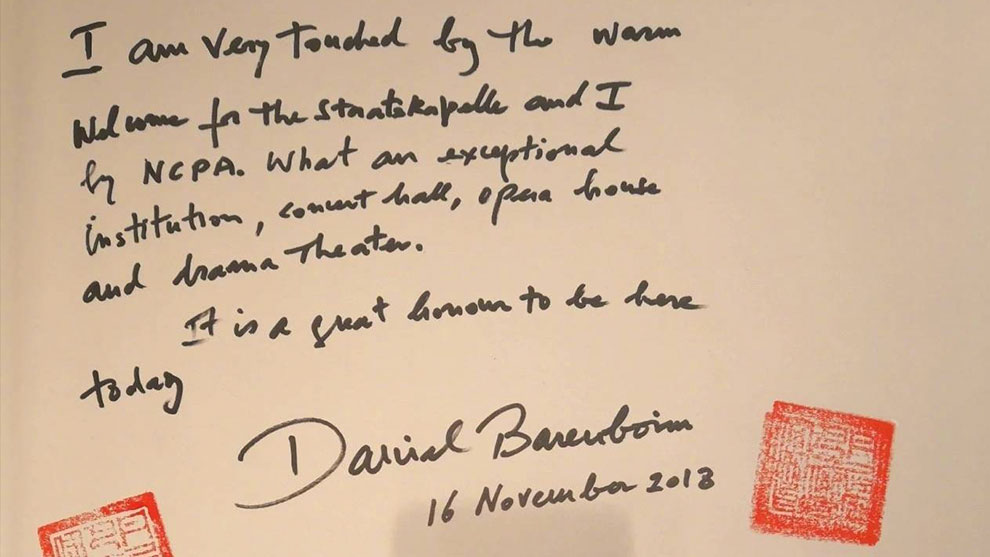 I am very touched by the warm
Welcome for the Staatskapelle and I
by NCPA. What an exceptional
institution, concert hall, opera house
and drama theater.
It is a great honour to be here
today
Daniel Barenboim
16 November 2018